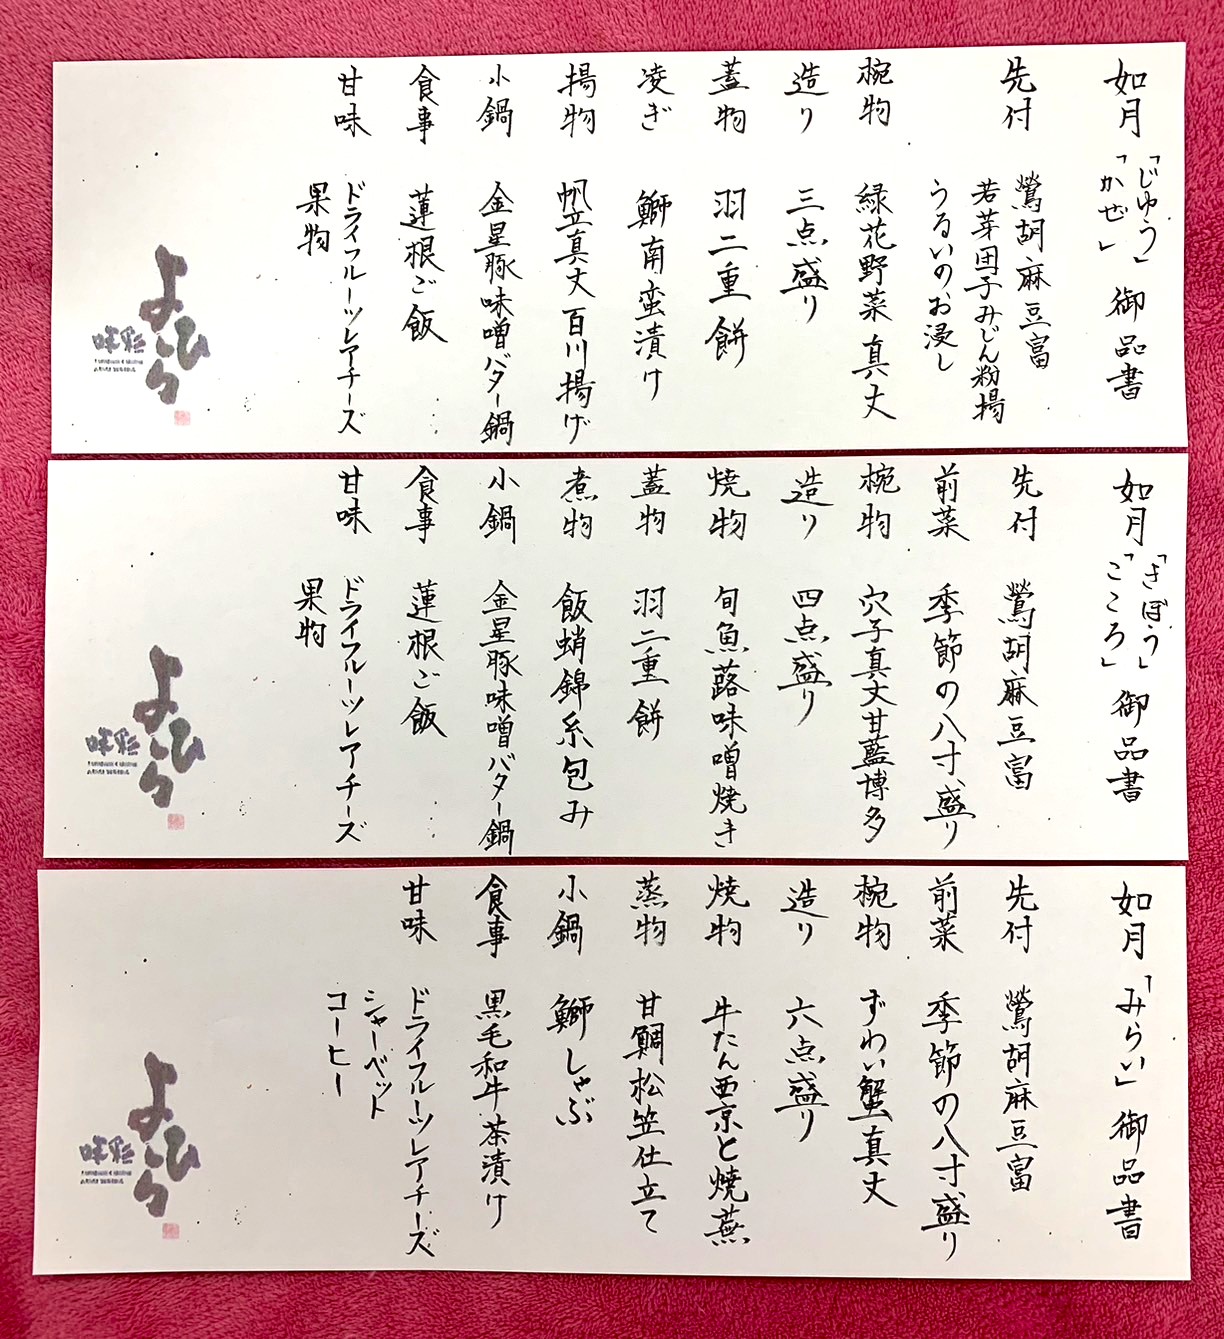 如月「じゅう」「かぜ」御品書
先付 鶯胡麻豆富
若芽団子みじん粉揚
うるいのお浸し
椀物 緑花野菜真丈
造り 三点盛り
蓋物 羽二重餅
凌ぎ 鰤南蛮漬け
揚物 帆立真丈百川揚げ
小鍋 金星豚味噌バター鍋
食事 蓮根ご飯
甘味 ドライフルーツレアチーズ
果物
よひら
彩味
如月「きぼう」「こころ」御品書
先付 鶯胡麻豆富
前菜 季節の八寸盛り
椀物 穴子真丈甘藍博多
造り 四点盛り
焼物 旬魚蕗味噌焼き
蓋物 羽二重餅
煮物 飯蛸錦糸包み
小鍋 金星豚味噌バター鍋
食事 蓮根ご飯
甘味 ドライフルーツレアチーズ
果物
よひら
彩味
如月「みらい」御品書
先付 鶯胡麻豆富
前菜 季節の八寸盛り
椀物 ずわい蟹真丈
造り 六点盛り
焼物 牛たん西京と焼蕪
蒸物 甘鯛松笠仕立て
小鍋 鰤しゃぶ
食事 黒毛和牛茶漬け
甘味 ドライフルーツレアチーズ
シャーベット
コーヒー
よひら
彩味